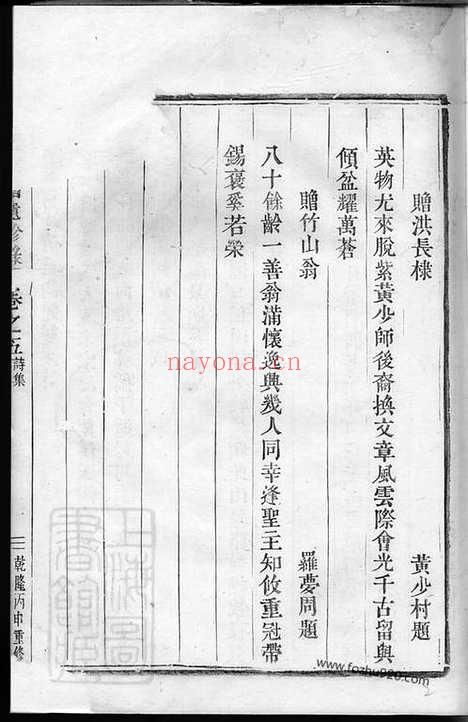 贈洪長棣 黃少村題
英物尤來脫紫黃少師後裔換文章風雲際會光千古留與
傾盆耀萬蒼
贈竹山翁 羅夢周題
八十餘齡一善翁滿懷逸興幾人同幸逢聖王知攸重冠帶
錫褒奚若榮
卷之五 詩集
乾隆丙申重修
nayona.cn
上海圖書館藏
www.fozhu920.com